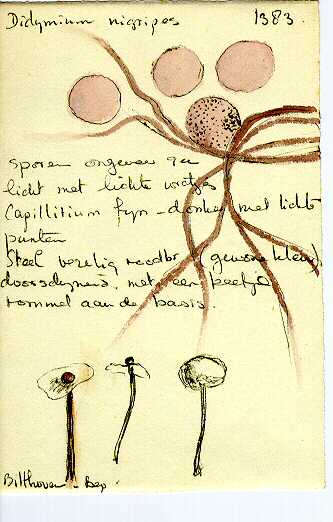 Didymium nigripes 1383.
Sporen ongeveer 9u
licht met lichte wratjes
Capillitium fyn - donker met licht
punten
Steel vezelig roodbr (gewone kleur)
doorschynend, met een beetje
rommel aan de basis.
Bilthoven - Sep